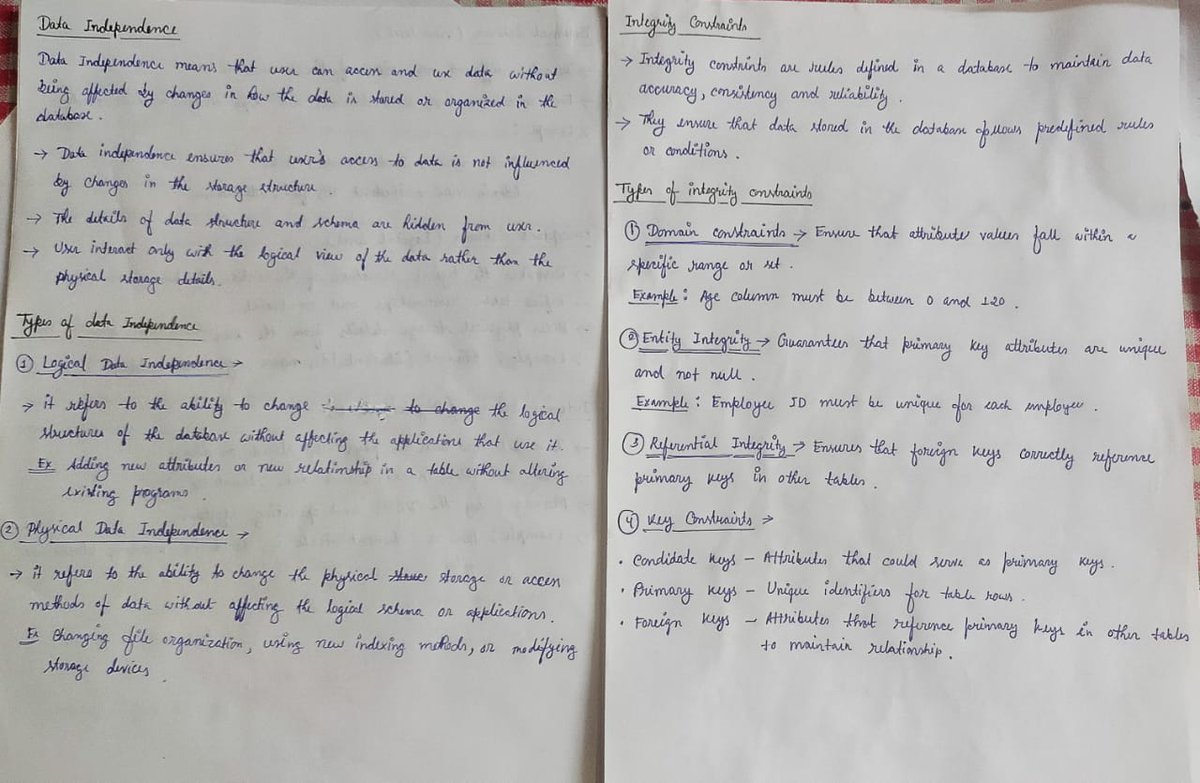 Data Independence
Data Independence means that user can access and use data without
being affected by changes in how the data is stored or organized in the
database.
→ Data independence ensures that user's access to data is not influenced
by changes in the storage structure.
→ The details of data structure and schema are hidden from user.
→ User interact only with the logical view of the data rather than the
physical storage details.
Types of data Independence
① Logical Data Independence →
→ it refers to the ability to change to change the logical
structures of the database without affecting the applications that use it.
Ex Adding new attributes or new relationship in a table without altering
existing programs.
② Physical Data Independence →
→ it refers to the ability to change the physical struc storage or access
methods of data without affecting the logical schema or applications.
Ex Changing file organization, using new indexing methods, or modifying
storage devices.
Integrity Constraints
→ Integrity constraints are rules defined in a database to maintain data
accuracy, consistency and reliability.
→ They ensure that data stored in the database follows predefined rules
or conditions.
Types of integrity constraints
① Domain constraints → Ensure that attribute values fall within a
specific range or set.
Example: Age column must be between 0 and 120.
② Entity Integrity → Guarantees that primary key attributes are unique
and not null.
Example: Employee ID must be unique for each employee.
③ Referential Integrity → Ensures that foreign keys correctly reference
primary keys in other tables.
④ Key Constraints →
• Candidate keys - Attributes that could serve as primary keys.
• Primary keys - Unique identifiers for table rows.
• Foreign keys - Attributes that reference primary keys in other tables
to maintain relationship.